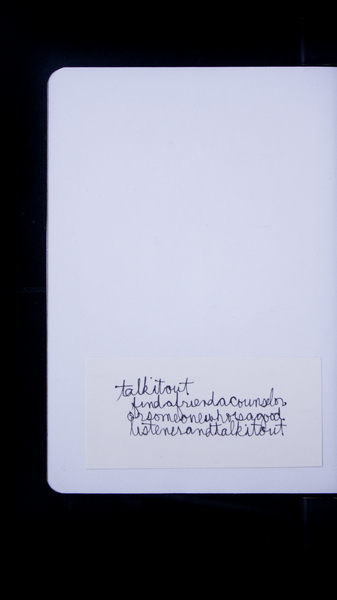 talkitout
findafriendacounselor
orsomeonewhoisagood
listenerandtalkitout